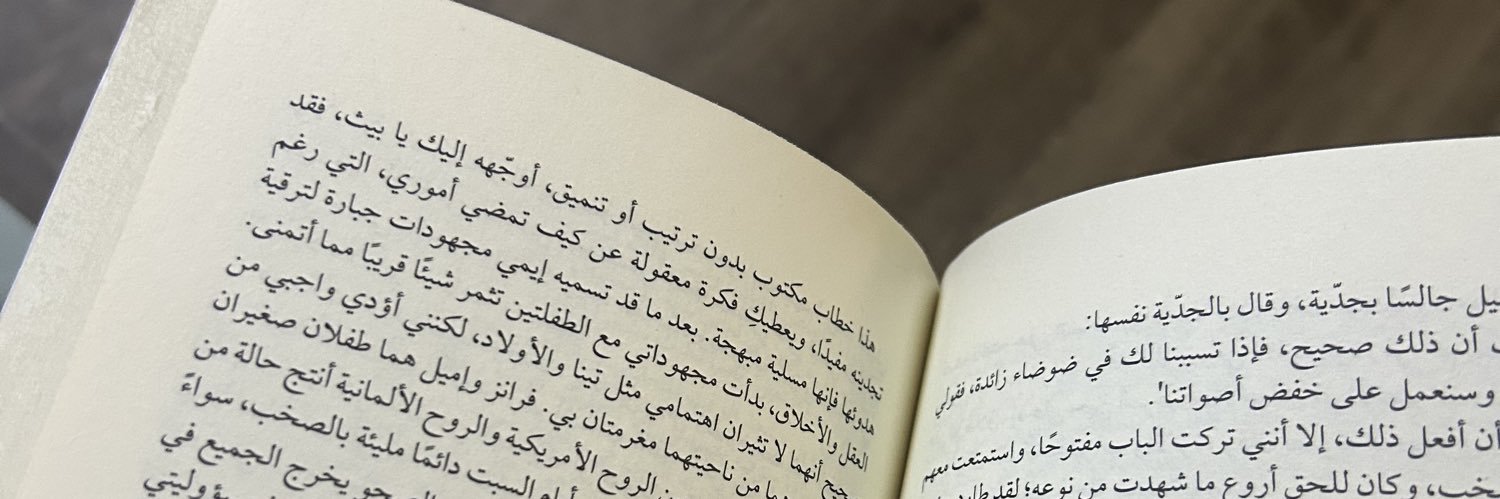 هذا خطاب مكتوب بدون ترتيب أو تنميق، أوجّهه إليك يا بيث، فقد
تجدينه مفيدًا، ويعطيكِ فكرة معقولة عن كيف تمضي أموري، التي رغم
هدوئها فإنها مسلية مبهجة. بعد ما قد تسميه إيمي مجهودات جبارة لترقية
العقل والأخلاق، بدأت مجهوداتي مع الطفلتين تثمر شيئًا قريبًا مما أتمنى.
أنهما لا تثيران اهتمامي مثل تينا والأولاد، لكنني أؤدي واجبي من
من ناحيتهما مغرمتان بي. فرانز وإميل هما طفلان صغيران
الروح الأمريكية والروح الألمانية أنتج حالة من
السبت دائمًا مليئة بالصخب، سواءً
يخرج الجميع في
جالسًا بجدّية، وقال بالجدّية نفسها:
أن ذلك صحيح، فإذا تسببنا لك في ضوضاء زائدة، فقولي
وسنعمل على خفض أصواتنا'.
أن أفعل ذلك، إلا أنني تركت الباب مفتوحًا، واستمتعت معهم
وكان للحق أروع ما شهدت من نوعه؛ لقد